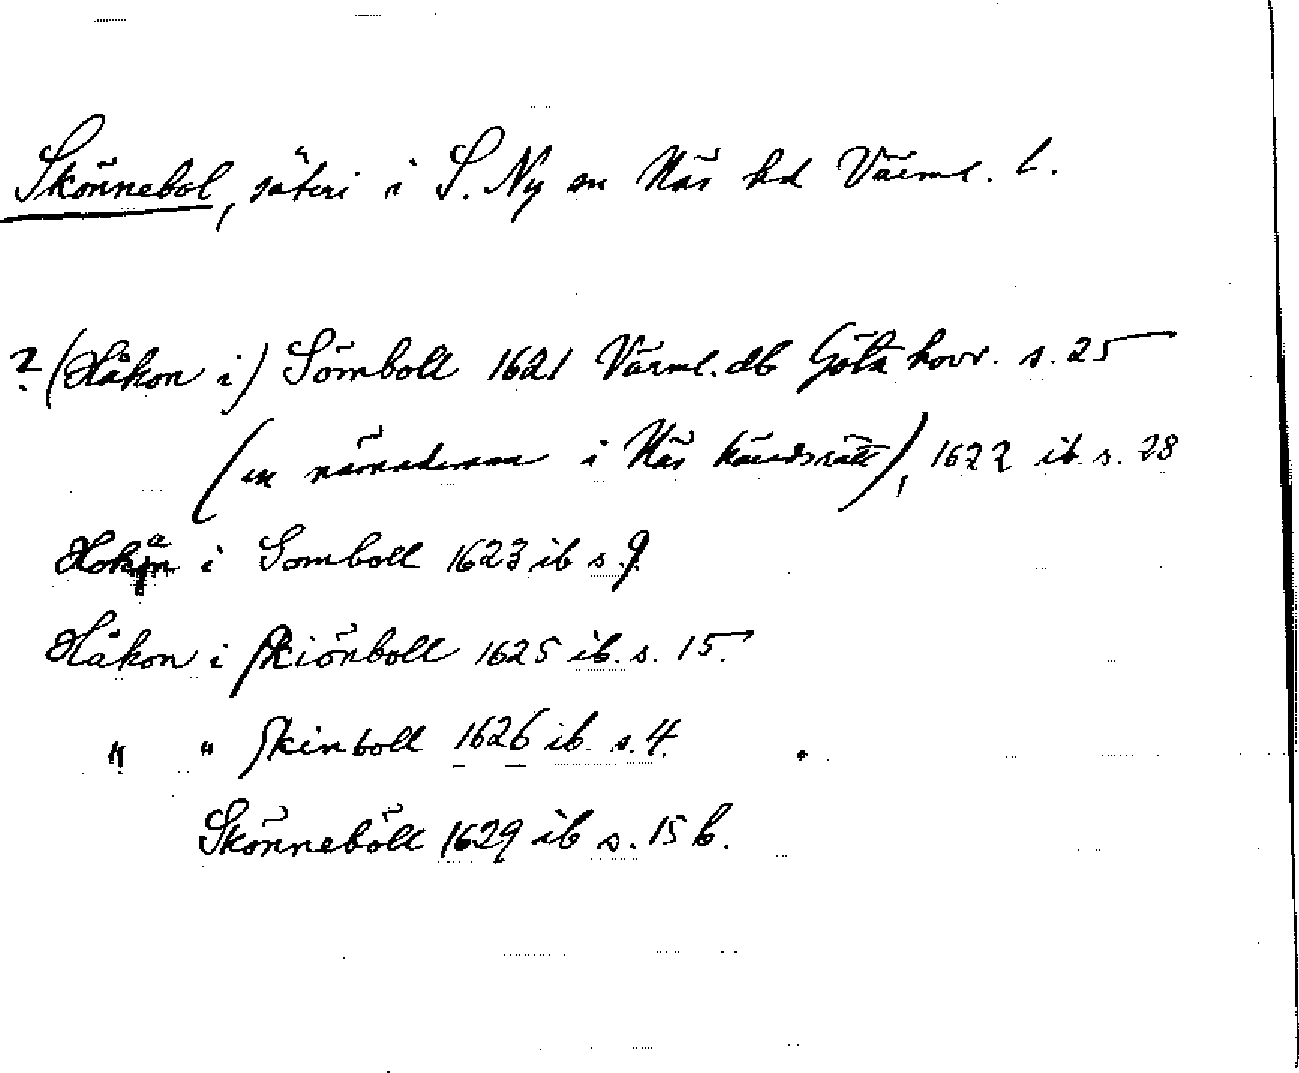 Skönnebol, säteri i S. Ny sn Näs hd Värml. l.
? (Håkon i) Sömboll 1621 Värml. db Göta hovr. s. 25
(en nämndeman i Näs häradsrätt), 1622 ib s. 28
Hokån i Somboll 1623 ib s. 9.
Håkon i Skiönboll 1625 ib. s. 15.
" " Skinboll 1626 ib. s. 4.
Skönneböll 1629 ib s. 15 b.